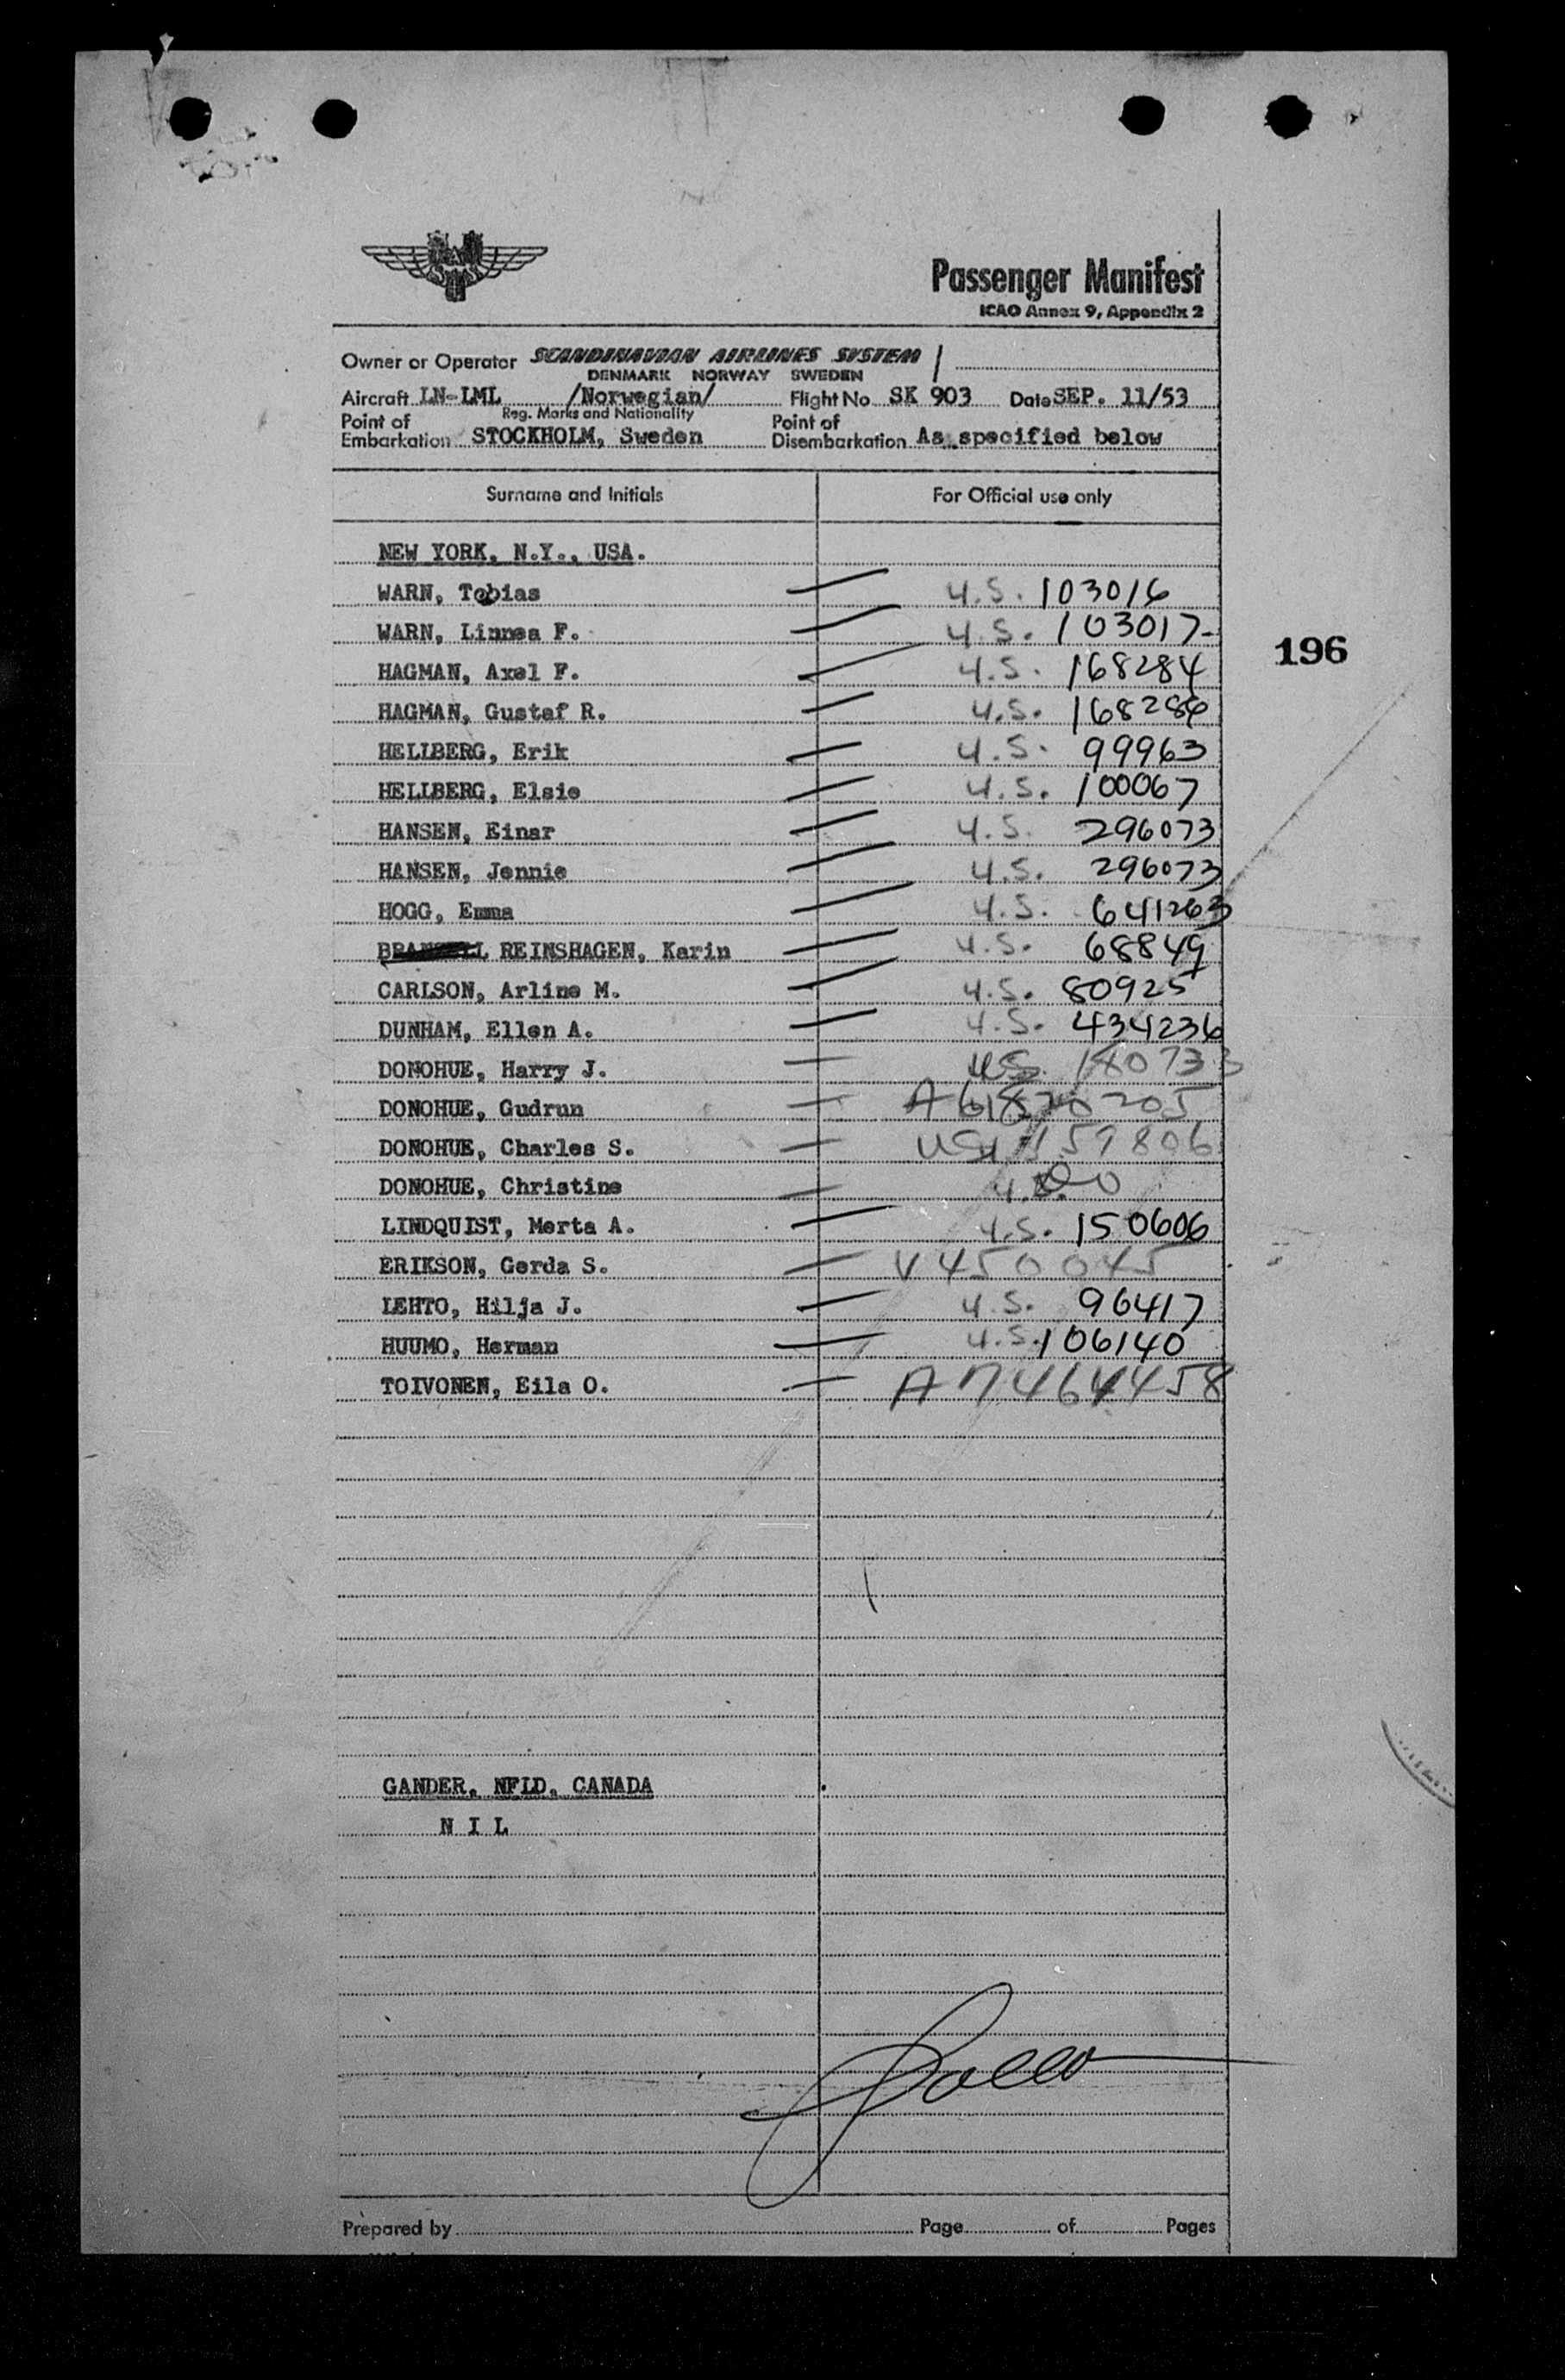 Passenger Manifest
ICAO Annex 9, Appendix 2
Owner or Operator SCANDINAVIAN AIRLINES SYSTEM
DENMARK NORWAY SWEDEN
Aircraft LN-LML /Norwegian/ Flight No SK 903 Date SEP. 11/53
Reg. Marks and Nationality
Point of Embarkation STOCKHOLM, Sweden Point of Disembarkation As specified below
Surname and Initials For Official use only
NEW YORK, N.Y., USA.
WARN, Tobias U.S. 103016
WARN, Linnea F. U.S. 103017
196
HAGMAN, Axel F. U.S. 168284
HAGMAN, Gustaf R. U.S.
HELLBERG, Erik U.S. 99963
HELLBERG, Elsie U.S. 100067
HANSEN, Einar U.S. 296073
HANSEN, Jennie U.S. 296073
HOGG, Emma U.S. 641263
REINSHAGEN, Karin U.S. 68849
CARLSON, Arline M. U.S. 80925
DUNHAM, Ellen A. U.S. 434236
DONOHUE, Harry J. US
DONOHUE, Gudrun
DONOHUE, Charles S.
DONOHUE, Christine
LINDQUIST, Merta A. U.S. 150606
ERIKSON, Gerda S. V450045
LEHTO, Hilja J. U.S. 96417
HUUMO, Herman U.S. 106140
TOIVONEN, Eila O.
GANDER, NFLD, CANADA
N I L
Prepared by Page of Pages